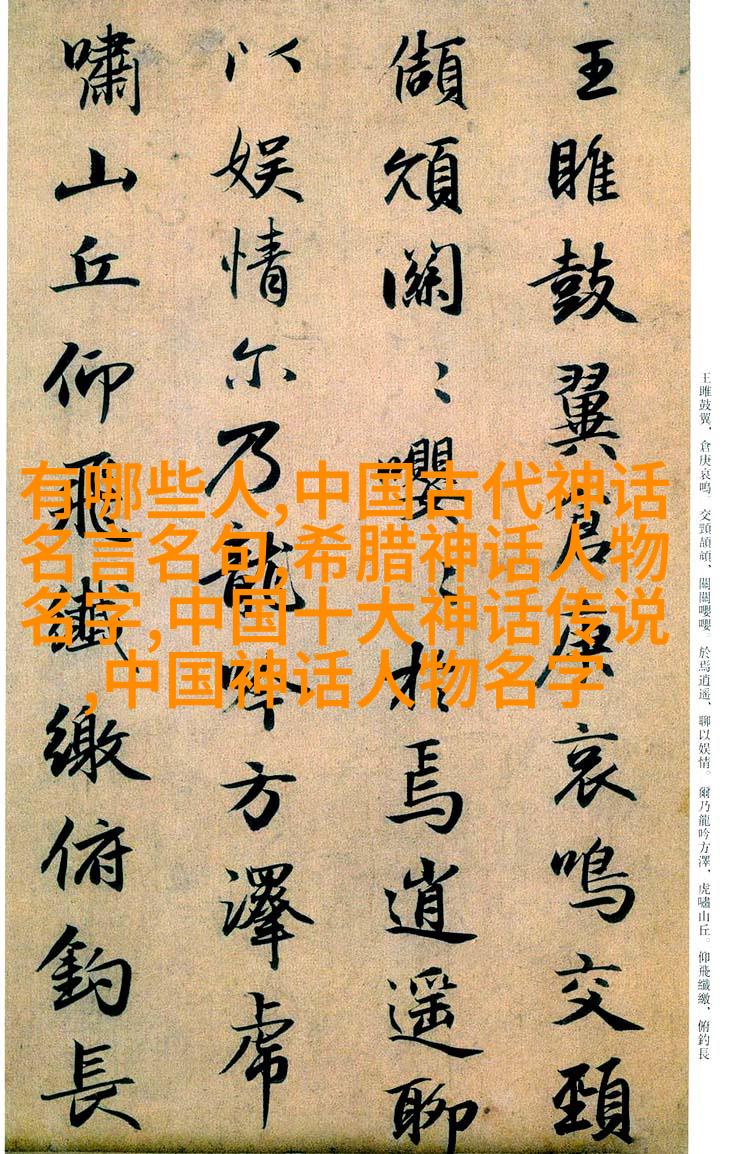 有哪些人,中国古代神话
名言名句,希腊神话人物
名字,中国十大神话传说
,中国神话人物名字
王雎鼓翼倉庚哀鳴交頸
頡頏關〻嚶〻於焉逍遥聊
以娱情尔乃龍吟方澤虎
嘯山丘仰飛纖繳俯釣長
王雎鼓翼、倉庚哀鳴。交頸頡頏、關關嚶嚶。於焉逍遥、聊以娱情。爾乃龍吟方澤、虎嘯山丘。仰飛纖繳、俯釣長